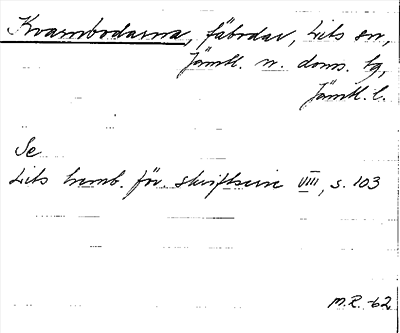 Kvarnbodarna, fäbodar, Lits sn,
Jämtl. n. doms. tg,
Jämtl. l.
Se
Lits hemb. för. skriftserie VIII, s. 103
M.R. -62